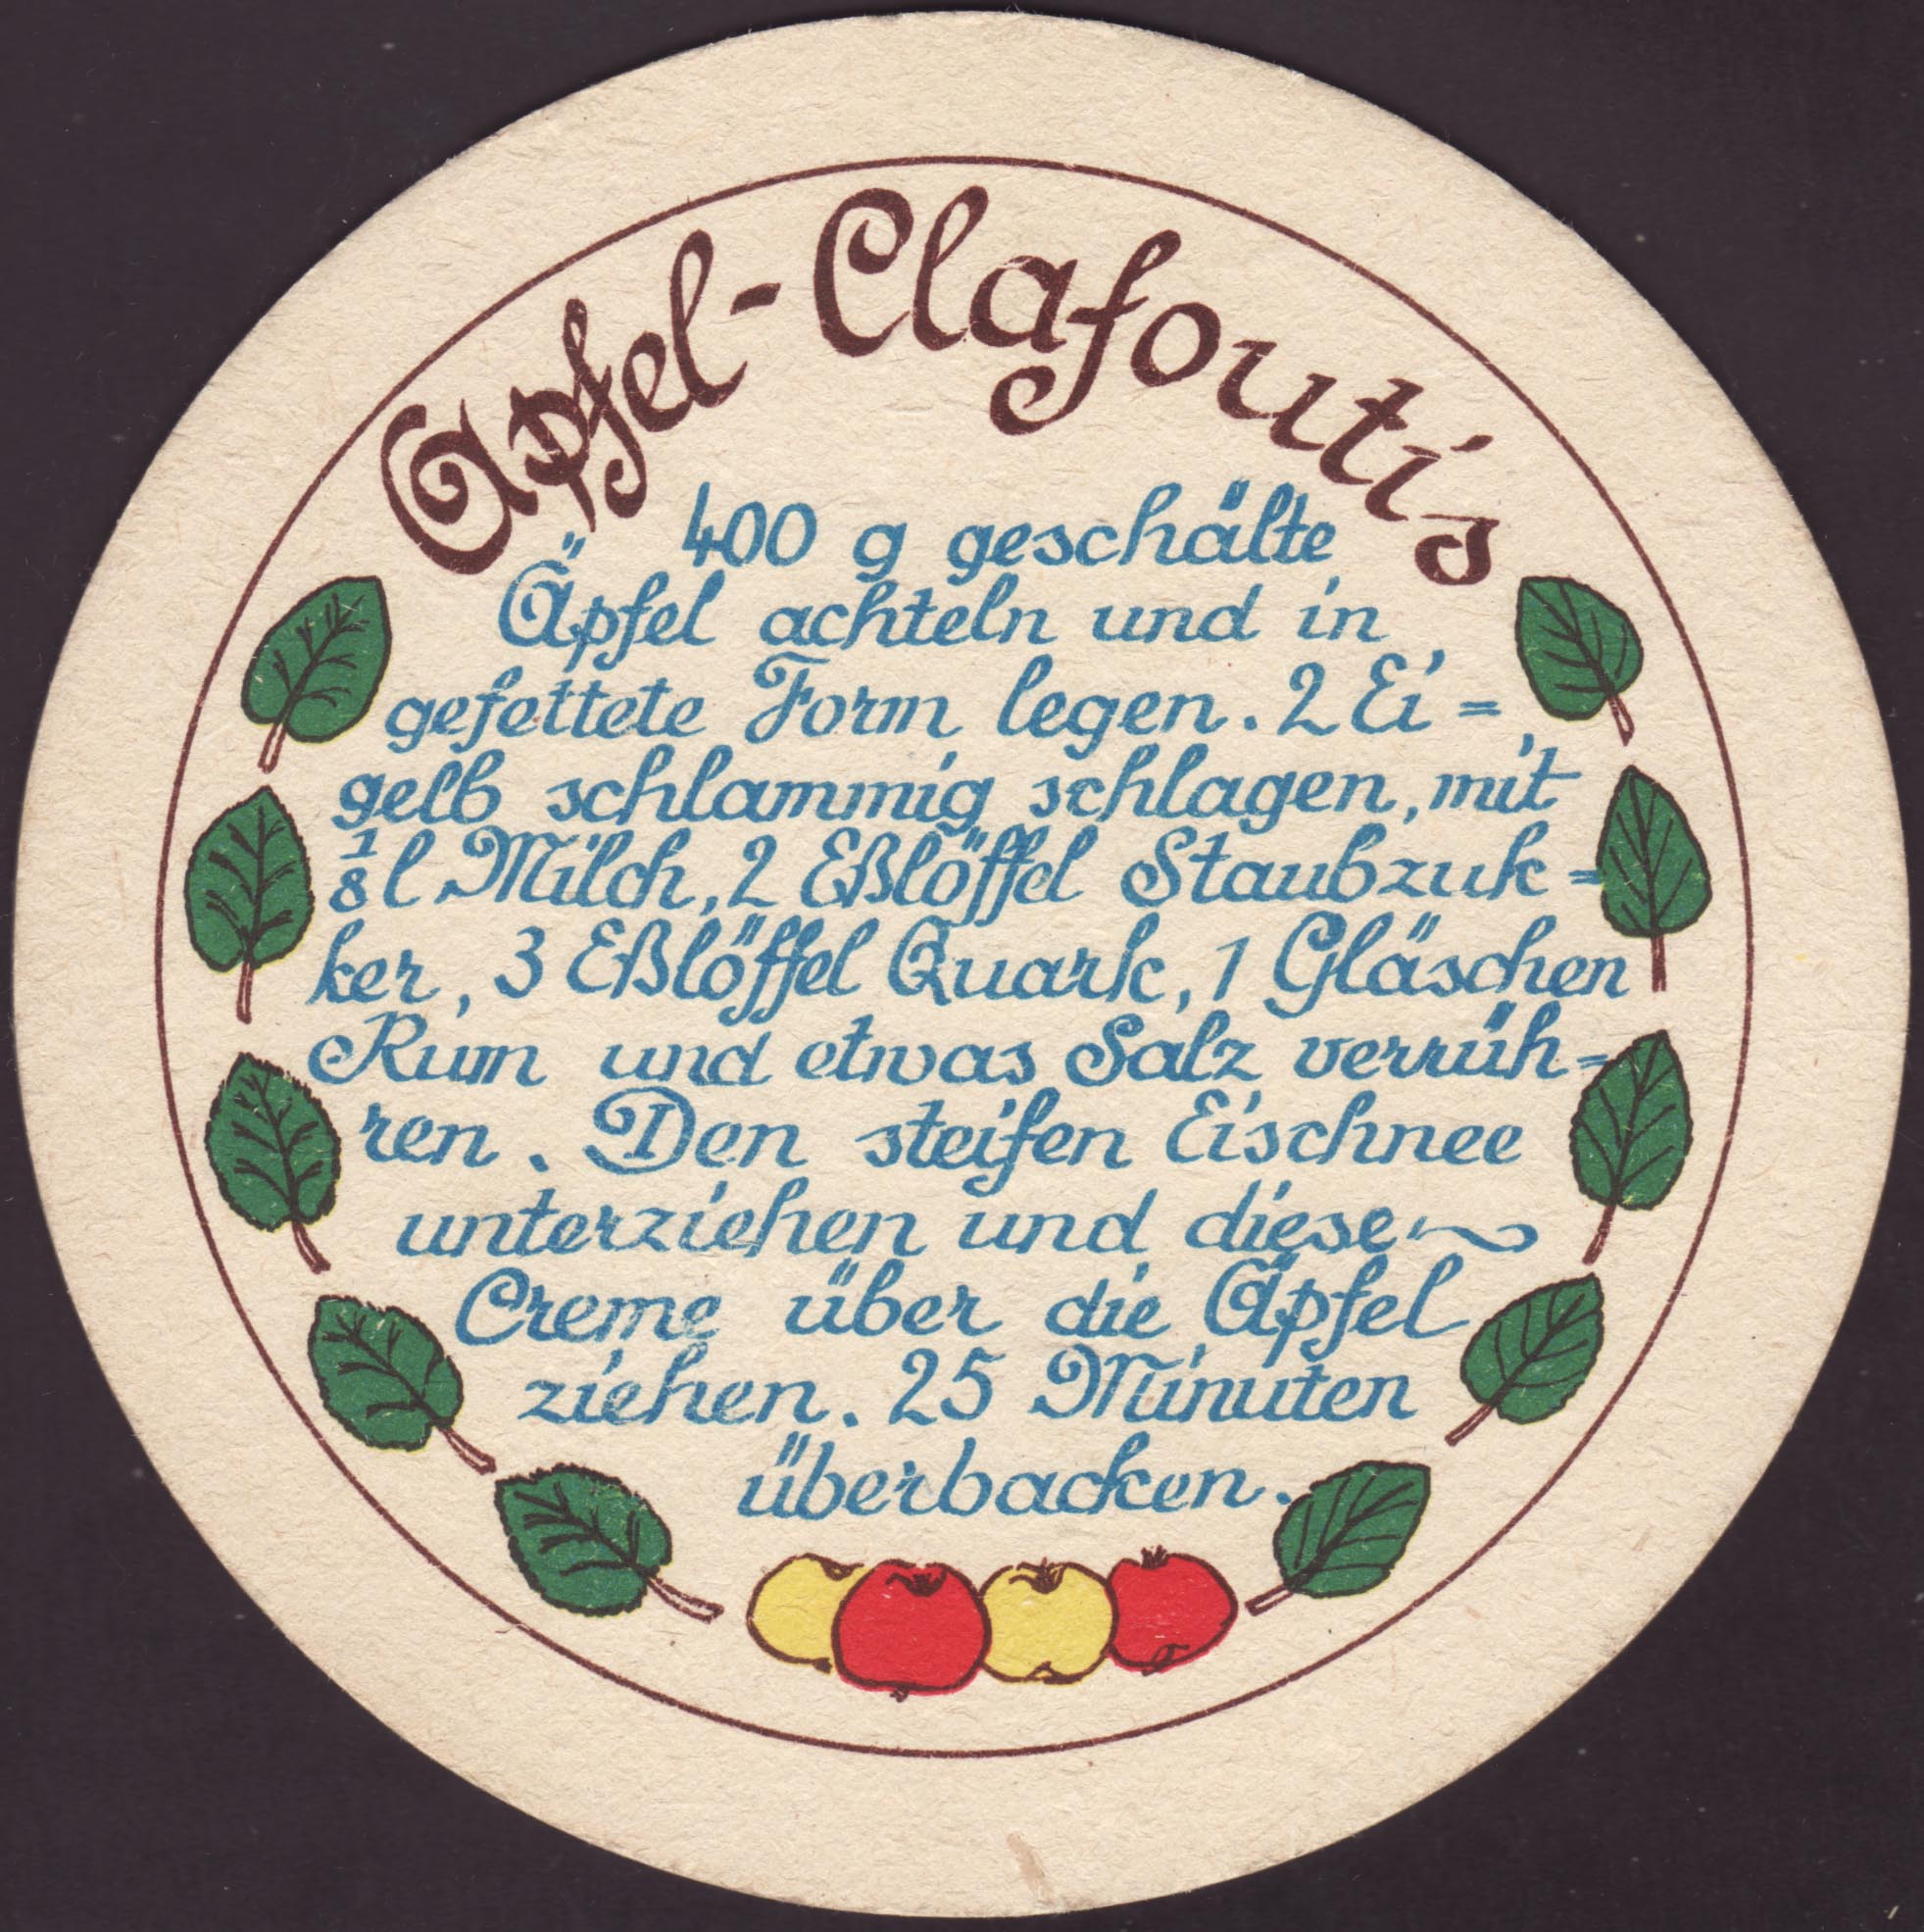 Apfel-Clafoutis
400 g geschälte
Äpfel achteln und in
gefettete Form legen. 2 Ei=
gelb schlammig schlagen, mit
1/8 l Milch, 2 Eßlöffel Staubzuk=
ker, 3 Eßlöffel Quark, 1 Gläschen
Rum und etwas Salz verrüh=
ren. Den steifen Eischnee
unterziehen und diese
Creme über die Äpfel
ziehen. 25 Minuten
überbacken.